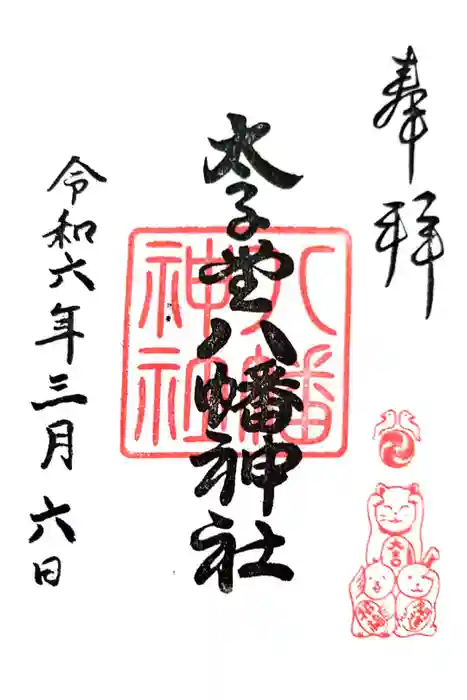 奉拝
太子堂八幡神社
八幡神社
令和六年三月六日
大吉